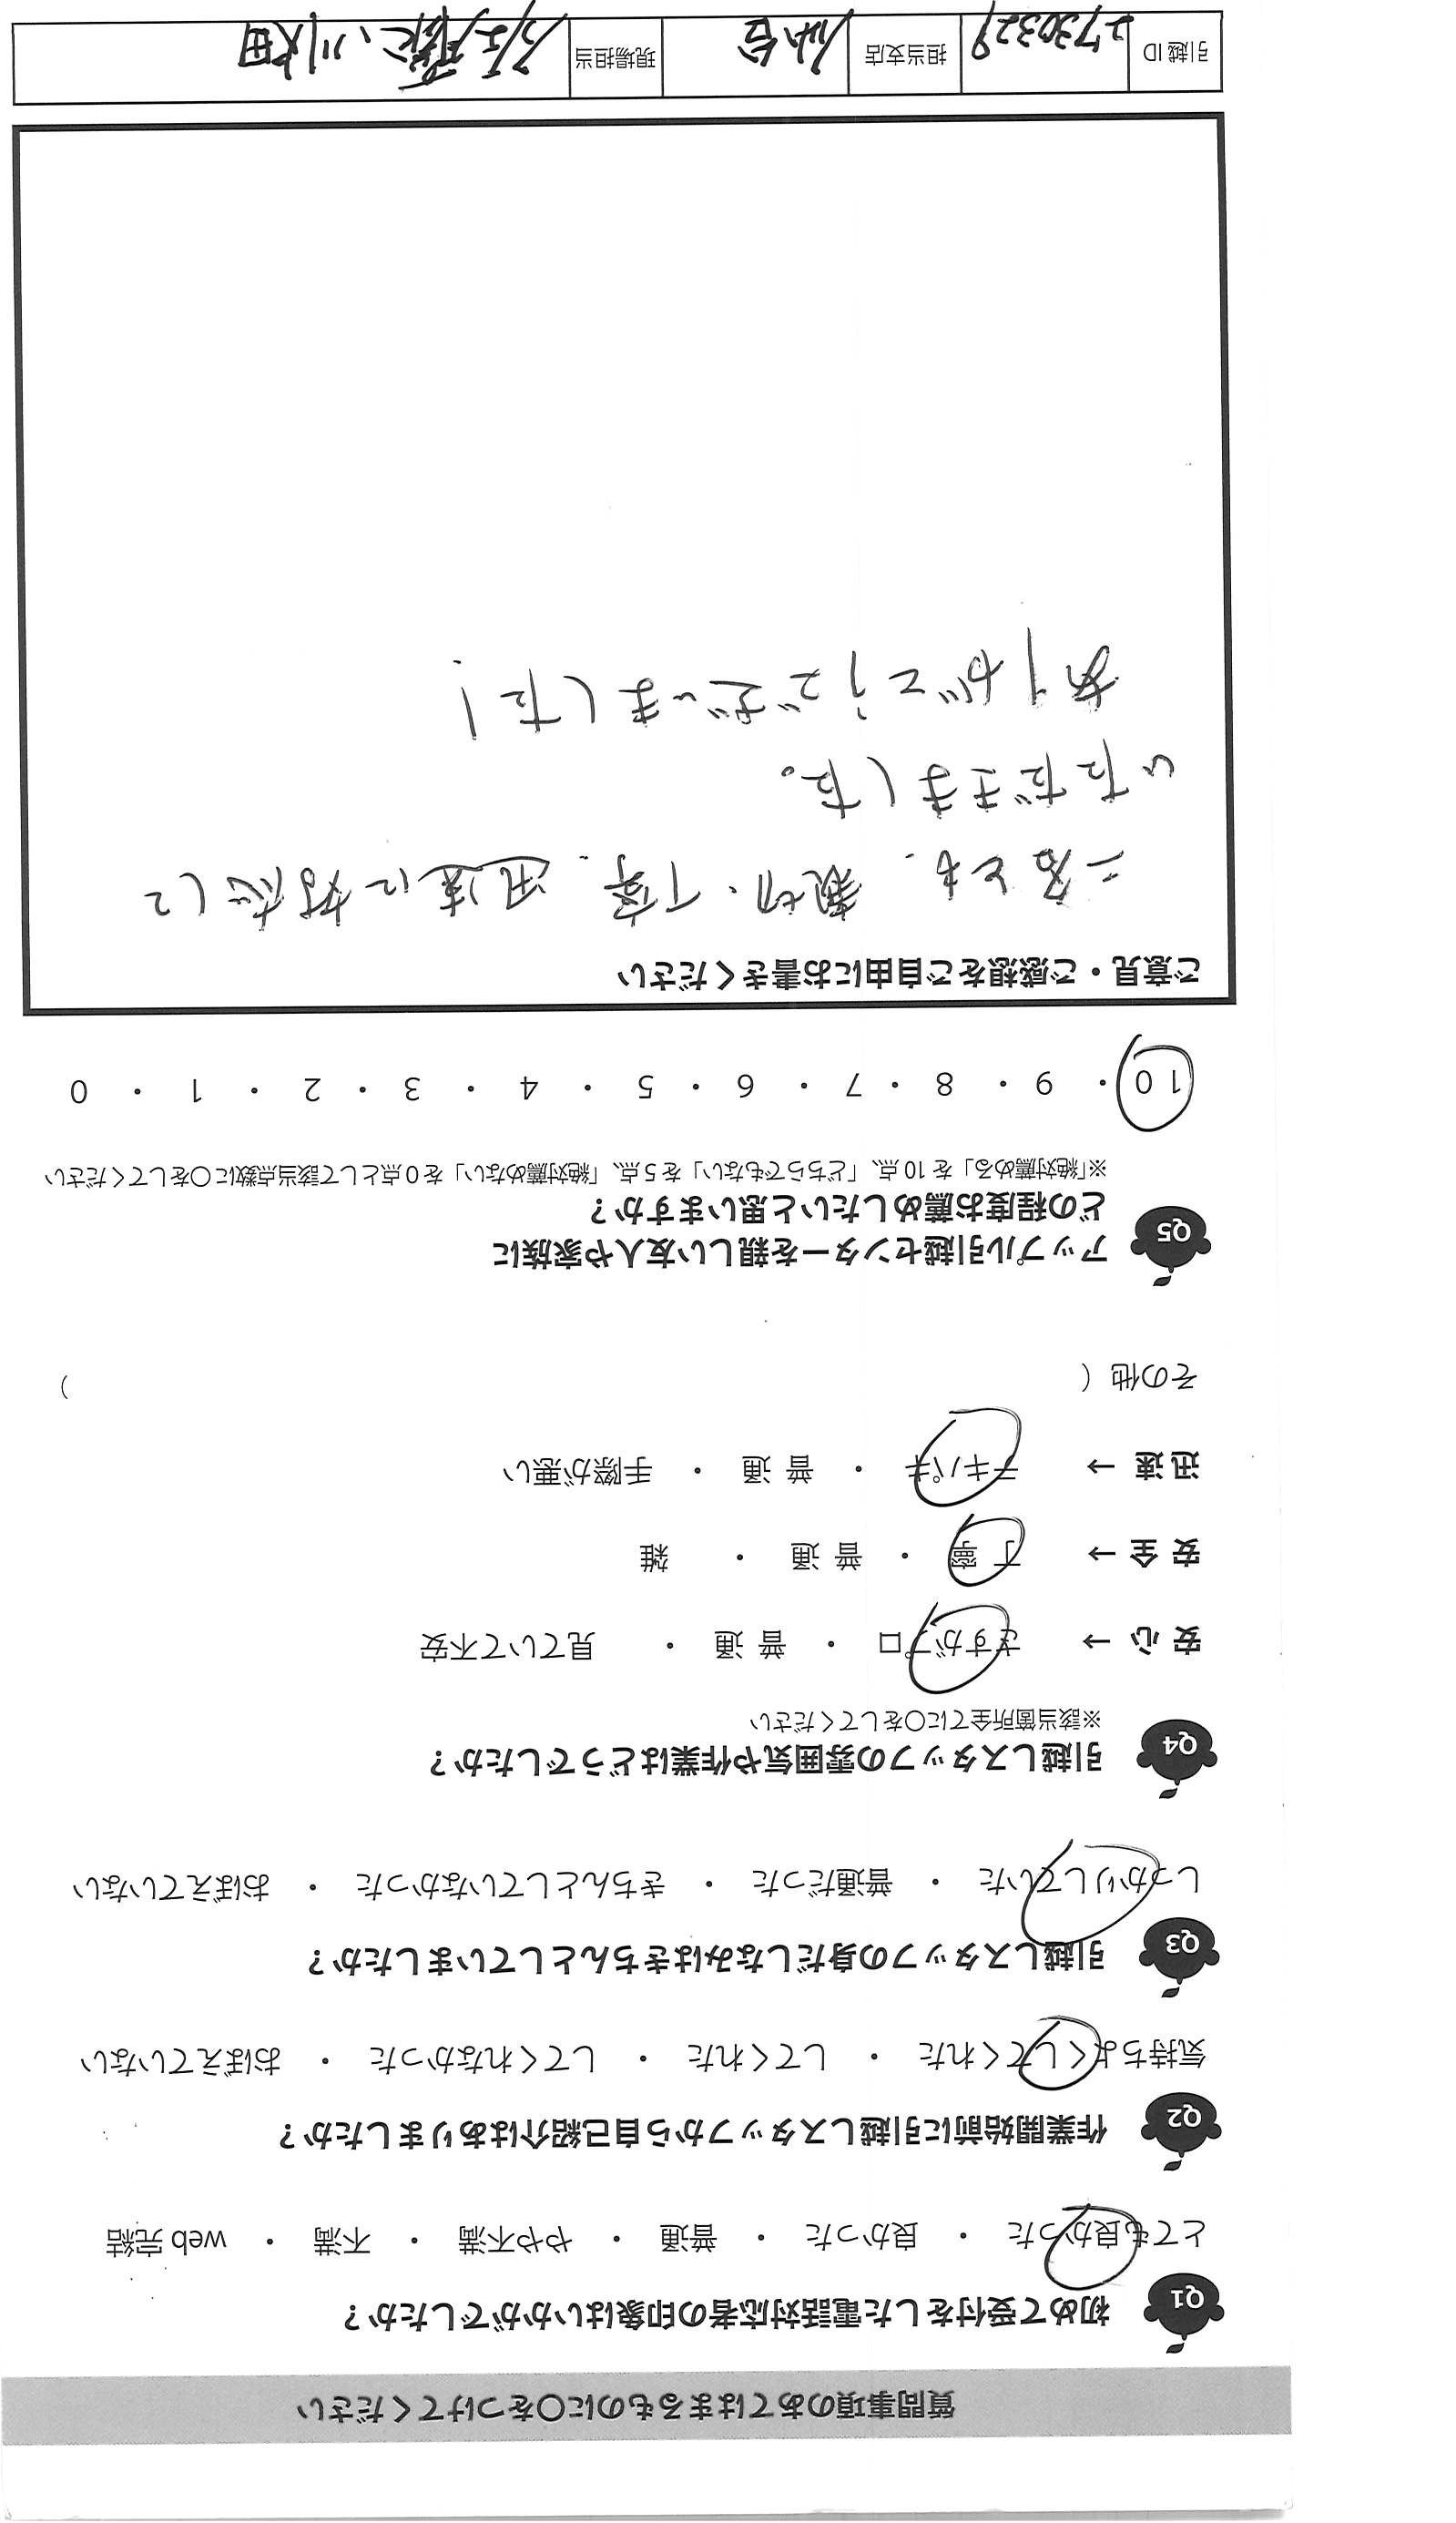 質問事項のあてはまるものに〇をつけてください
Q1 初めて受付をした電話対応者の印象はいかがでしたか？
とても良かった ・ 良かった ・ 普通 ・ やや不満 ・ 不満 ・ web 完結
Q2 作業開始前に引越しスタッフから自己紹介はありましたか？
気持ちよくしてくれた ・ してくれた ・ してくれなかった ・ おぼえていない
Q3 引越しスタッフの身だしなみはきちんとしていましたか？
しっかりしていた ・ 普通だった ・ きちんとしていなかった ・ おぼえていない
Q4 引越しスタッフの雰囲気や作業はどうでしたか？
※該当箇所全てに〇をしてください
安 心 → さすがプロ ・ 普 通 ・ 見ていて不安
安 全 → 丁 寧 ・ 普 通 ・ 雑
迅 速 → テキパキ ・ 普 通 ・ 手際が悪い
その他（ ）
Q5 アップル引越センターを親しい友人や家族に
どの程度お薦めしたいと思いますか？
※「絶対薦める」を 10 点、「どちらでもない」を 5 点、「絶対薦めない」を 0 点として該当点数に〇をしてください
10 ・ 9 ・ 8 ・ 7 ・ 6 ・ 5 ・ 4 ・ 3 ・ 2 ・ 1 ・ 0
ご意見・ご感想をご自由にお書きください
二名とも、親切・丁寧、迅速に対応して
いただきました。
ありがとうございました！
引越 ID 2730329 担当支店 仙台 現場担当 川太田